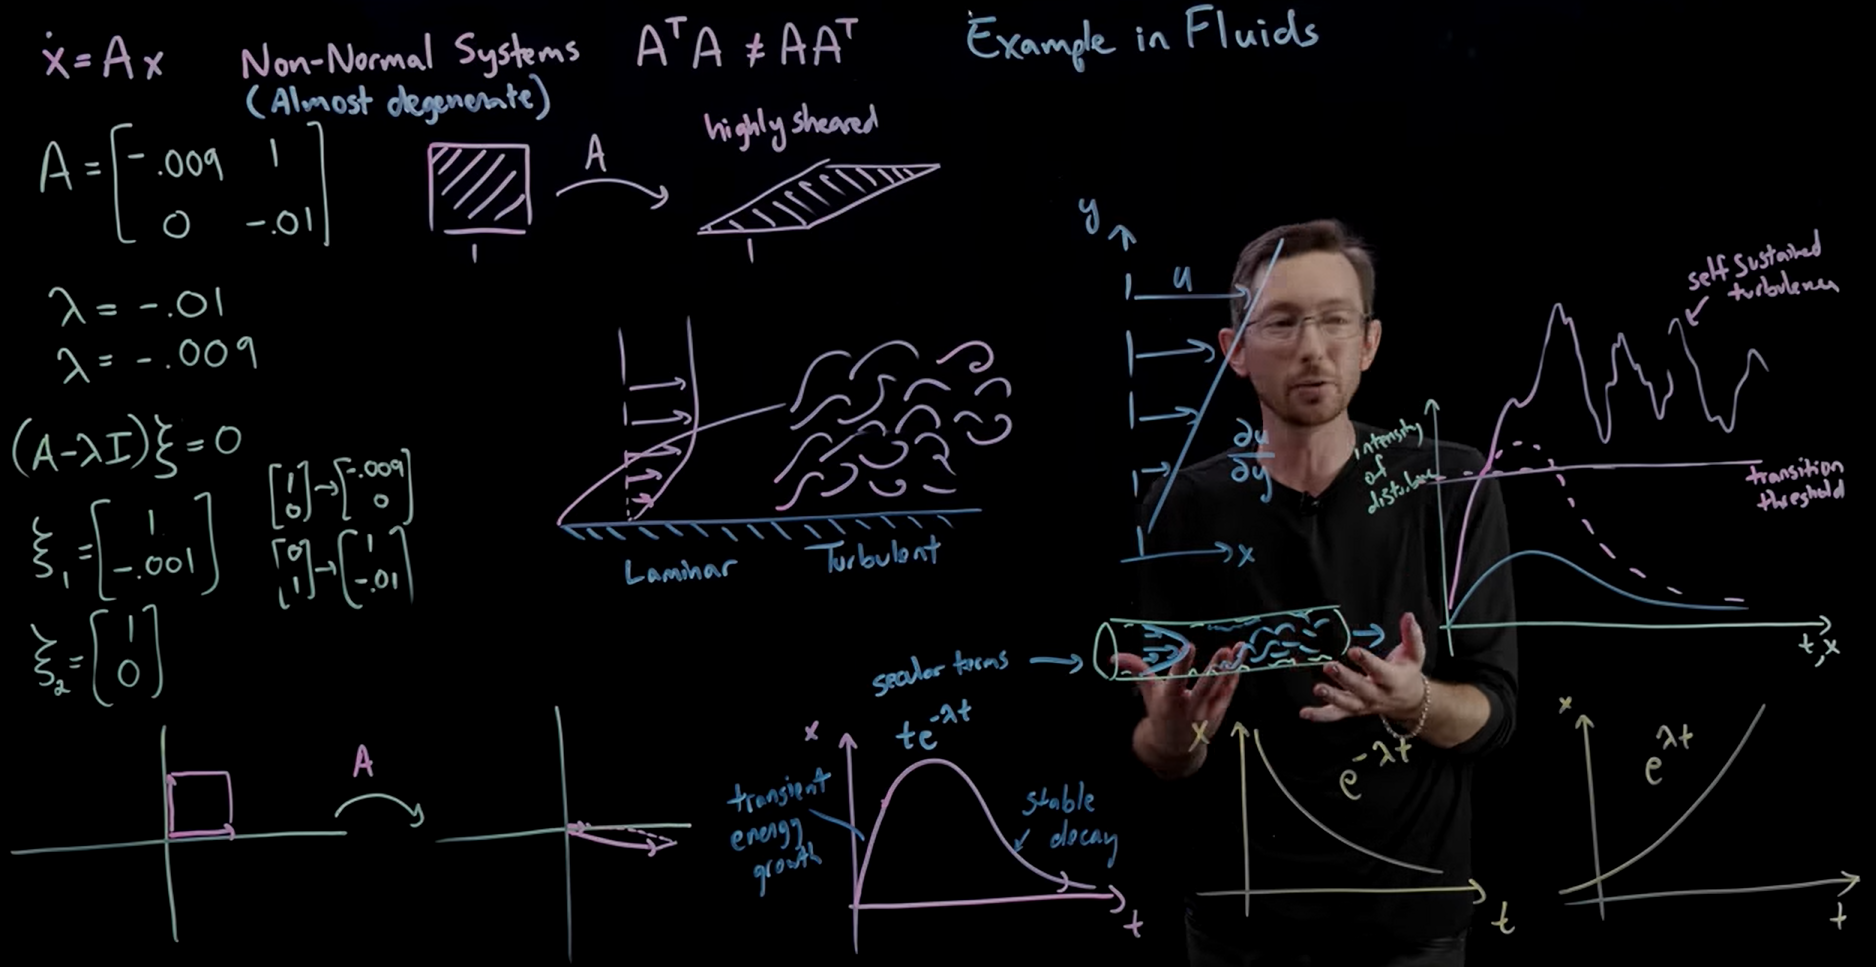 ẋ = Ax
Non-Normal Systems
AᵀA ≠ AAᵀ
(Almost degenerate)
Example in Fluids
A = [-.009 1
0 -.01]
A
highly sheared
1
1
λ = -.01
λ = -.009
(A-λI)ξ = 0
ξ₁ = [1
-.001]
ξ₂ = [1
0]
[1
0] → [-.009
0]
[0
1] → [1
-.01]
Laminar
Turbulent
y
u
∂u
∂y
x
intensity
of
self sustained
turbulence
transition
threshold
t,x
A
secular terms
te^-λt
x
transient
energy
growth
stable
decay
t
x
e^-λt
t
x
e^λt
t